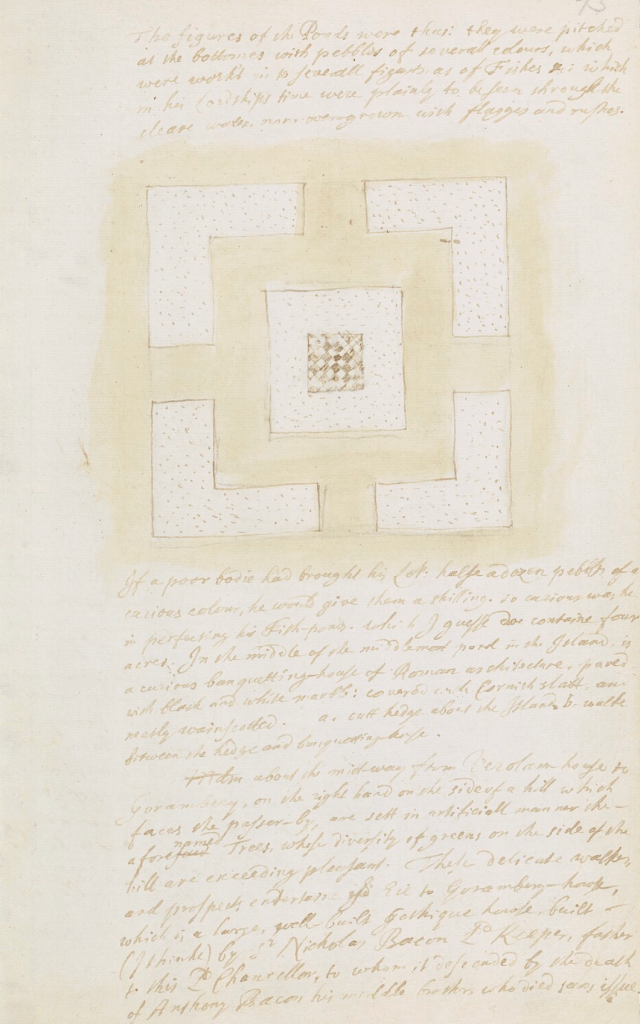 The figures of the Ponds were thus: they were pitched
at the bottomes with pebbles of severall colours, which
were workt in to severall figures as of Fishes &c: which
in his Lordship's time were plainly to be seen through the
cleare water, now overgrown with flagges and rushes.
If a poor bodie had brought his Lop: halfe a dozen pebbles of a
curious colour, he would give them a shilling, so curious was he
in perfecting his Fish-ponds, which I guesse doe containe four
acres. In the middle of the middlemost pond in the Island, is
a curious banquetting-house of Roman architecture, paved
with black and white marble: covered with Cornish slatt, and
neatly wainscotted. a. cutt hedge about the Island, b. walke
between the hedge and banquetting-house.
about the mid-way from Verolam house to
Gorambery, on the right hand on the side of a hill which
faces the passer-by, are sett in artificiall manner the
afore named Trees, whose diversity of greens on the side of the
hill are exceeding pleasant. These delicate walkes
and prospects entertaine the Eie to Gorambery-house,
which is a large, well built Gothique house, built
(I thinke) by Sr Nicholas Bacon Ld Keeper, father
to this Ld Chancellor, to whom it descended by the death
of Anthony Bacon his middle brother, who died sans issue.